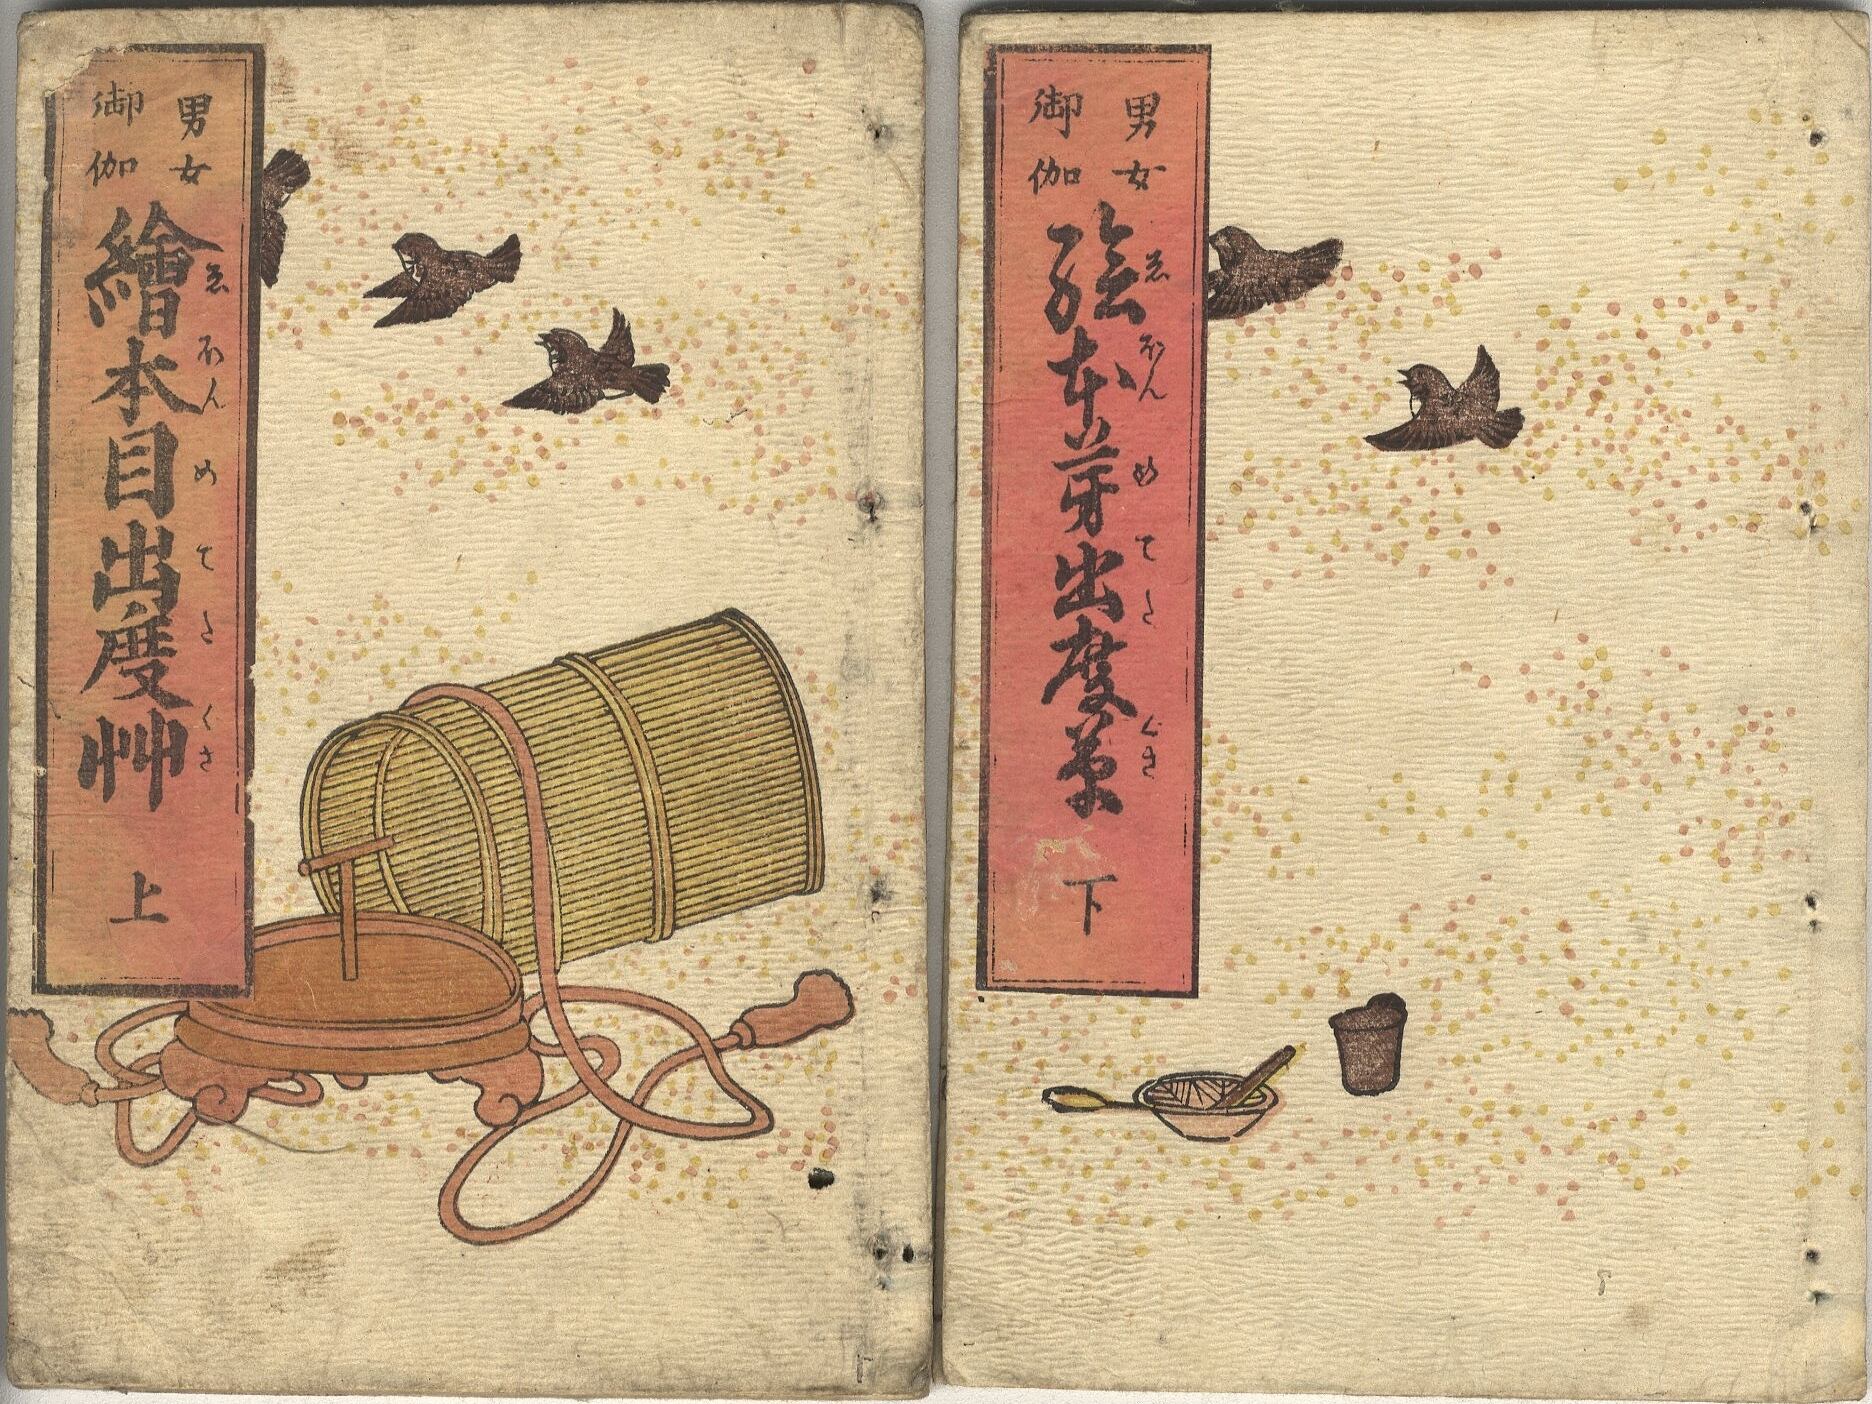 男女
御伽
繪本目出度艸
ゑほんめてたくさ
上
男女
御伽
絵本芽出度草
ゑほんめてたくさ
下